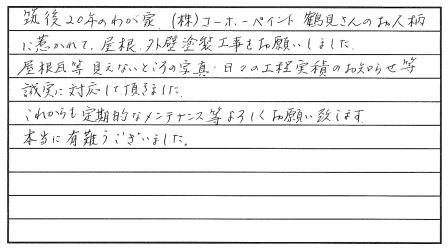 築後20年のわが家 (株)コーホーペイント 鶴見さんのお人柄
に惹かれて、屋根、外壁塗装工事をお願いしました。
屋根瓦等見えないところの写真・日々の工程実積のお知らせ等
誠実に対応して頂きました。
これからも定期的なメンテナンス等よろしくお願い致します
本当に有難うございました。